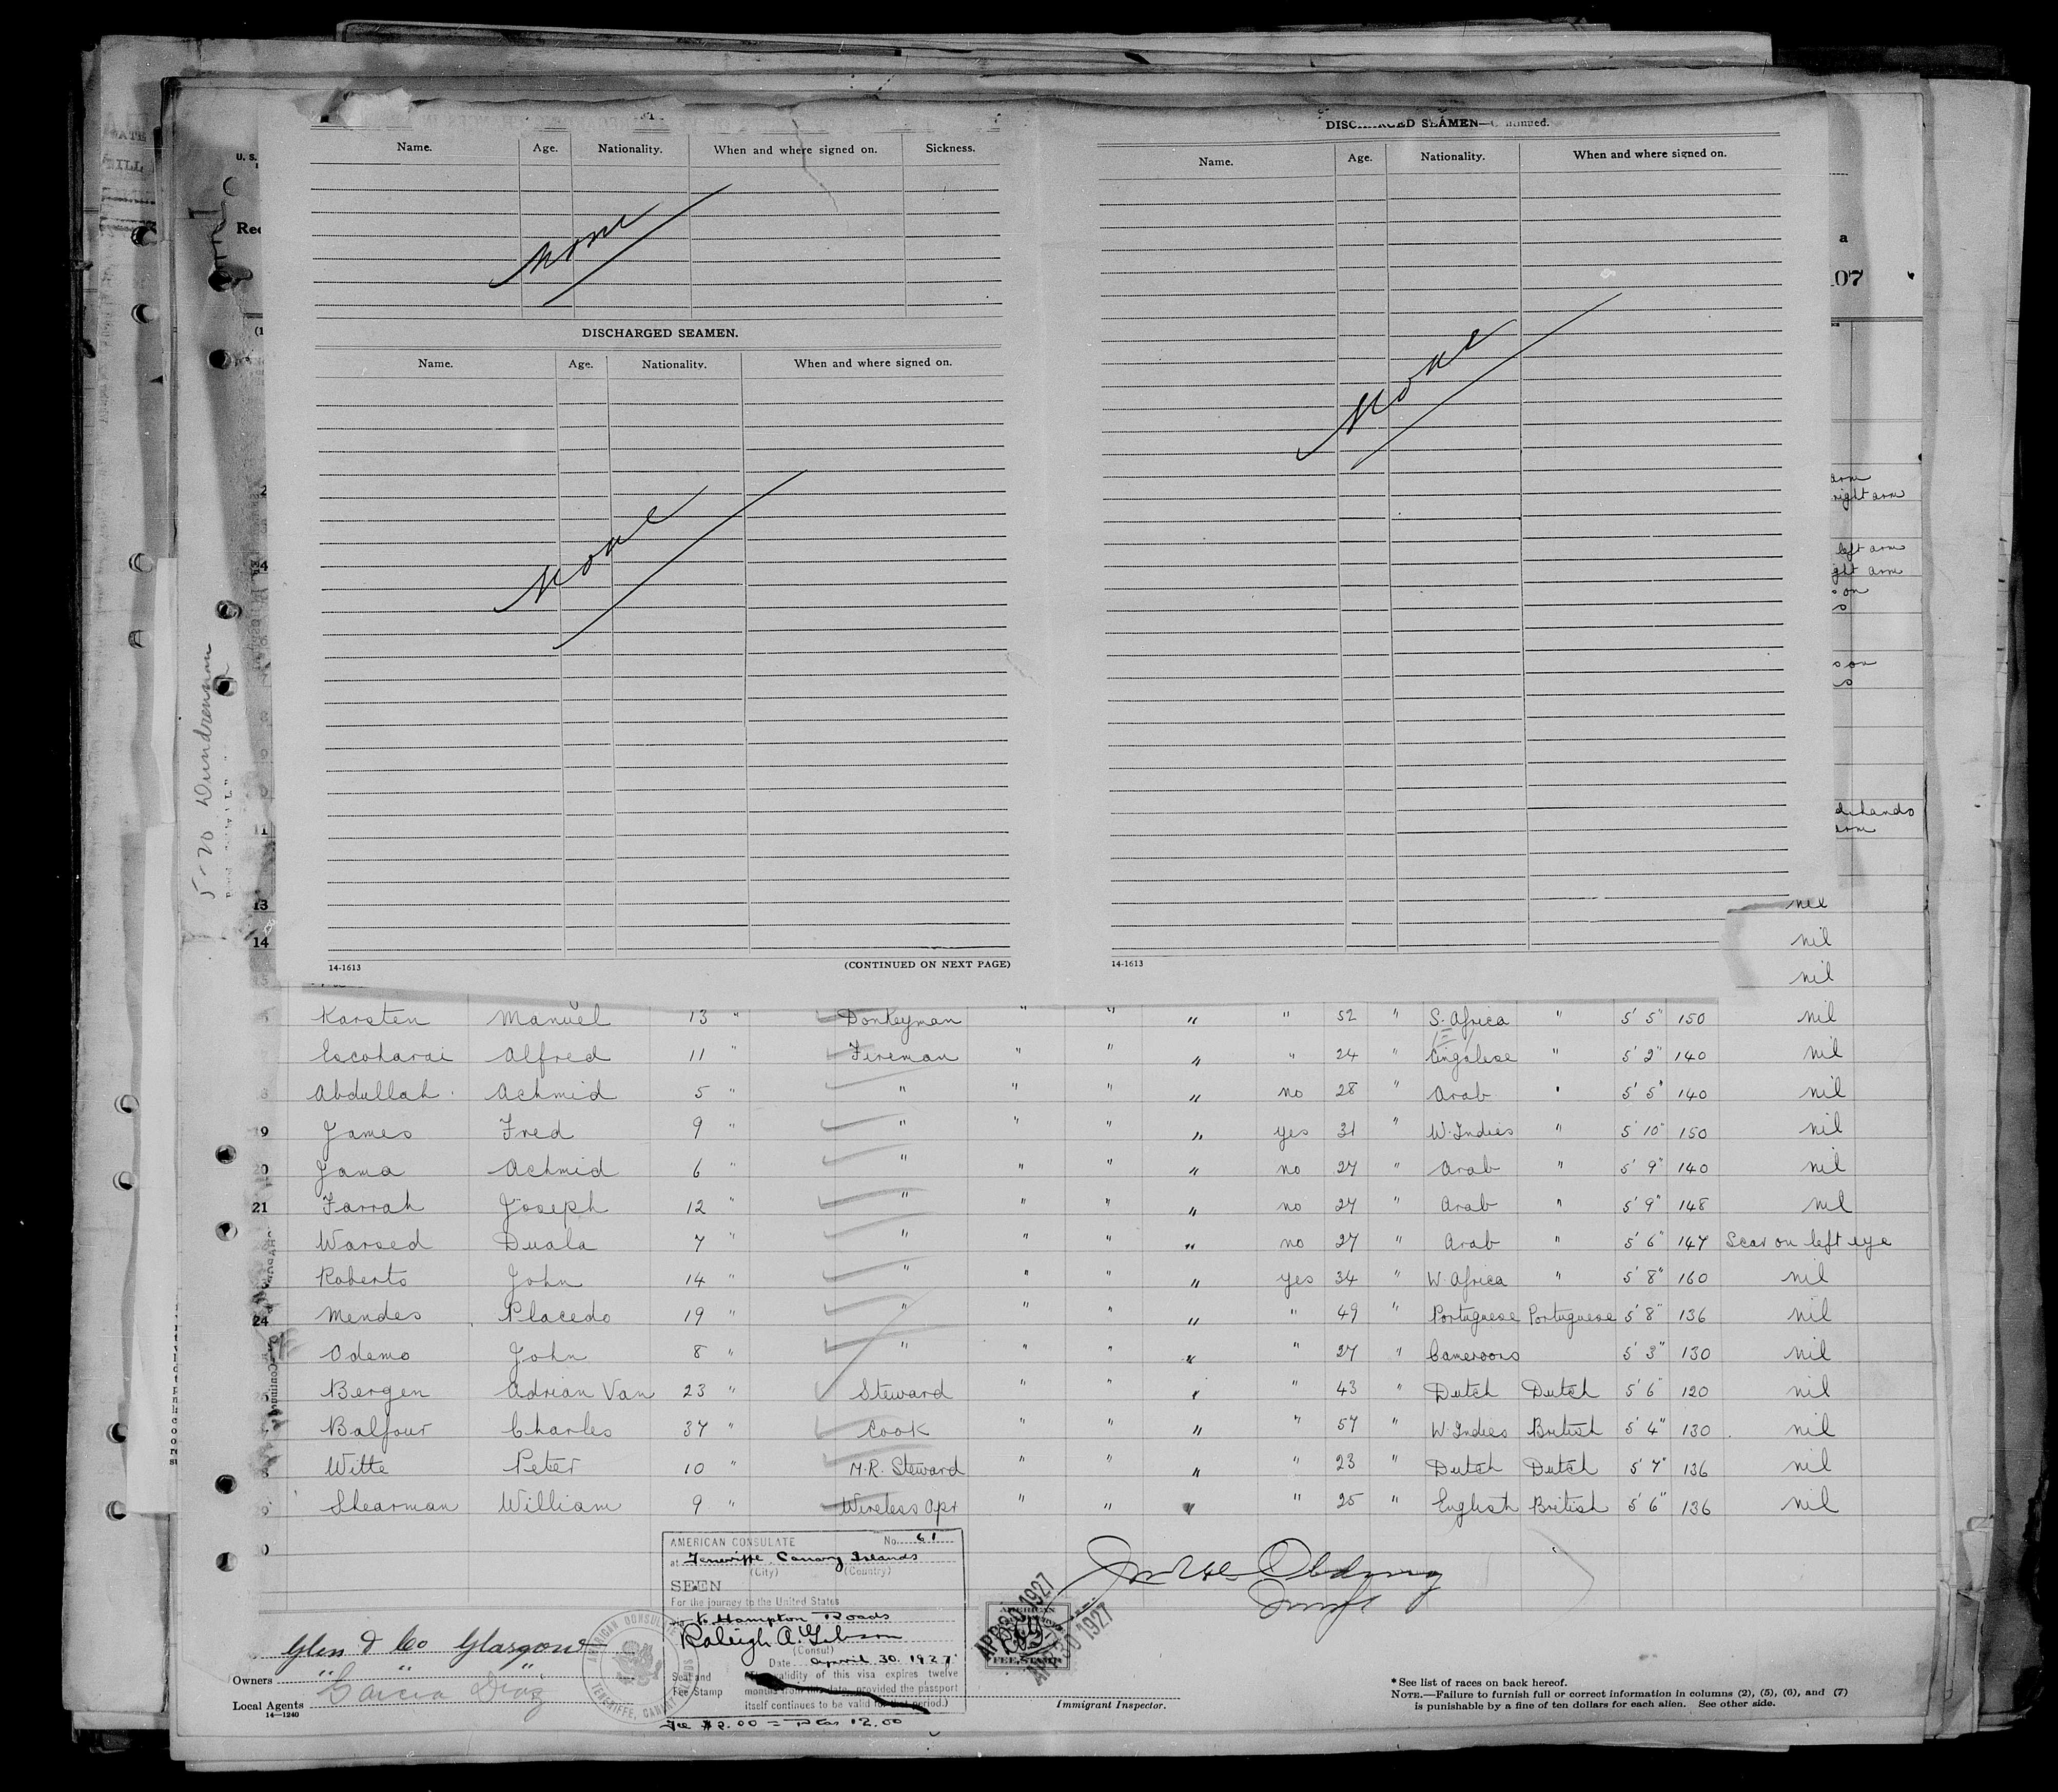 DISCHARGED SEAMEN—
Name. Age. Nationality. When and where signed on. Sickness.
None
DISCHARGED SEAMEN.
Name. Age. Nationality. When and where signed on.
None
14-1613 (CONTINUED ON NEXT PAGE)
Name. Age. Nationality. When and where signed on.
None
14-1613
U. S.
a
07
arm
right arm
left arm
arm
arm
5-20 Dundrennan
11
13 nil
14 nil
nil
Karsten Manuel 13 " Donkeyman " " " " 52 " S. Africa " 5' 5" 150 nil
Escoharai Alfred 11 " Fireman " " " " 24 " Cingalese " 5' 2" 140 nil
Abdullah Achmid 5 " " " " " no 28 " Arab " 5' 5" 140 nil
19 James Fred 9 " " " " " yes 31 " W. Indies " 5' 10" 150 nil
20 Jama Achmid 6 " " " " " no 27 " Arab " 5' 9" 140 nil
21 Farrah Joseph 12 " " " " " no 27 " Arab " 5' 9" 148 nil
Warsed Duala 7 " " " " " no 27 " Arab " 5' 6" 147 Scar on left eye
Roberts John 14 " " " " " yes 34 " W. Africa " 5' 8" 160 nil
24 Mendes Placedo 19 " " " " " " 49 " Portuguese Portuguese 5' 8" 136 nil
Odemo John 8 " " " " " " 27 " Cameroons 5' 3" 130 nil
Bergen Adrian Van 23 " Steward " " " " 43 " Dutch Dutch 5' 6" 120 nil
Balfour Charles 37 " Cook " " " " 57 " W. Indies British 5' 4" 130 nil
Witte Peter 10 " M.R. Steward " " " " 23 " Dutch Dutch 5' 7" 136 nil
Shearman William 9 " Wireless Opr " " " " 25 " English British 5' 6" 136 nil
AMERICAN CONSULATE No. 61
at Teneriffe, Canary Islands
(City) (Country)
SEEN
For the journey to the United States
to Hampton Roads
Raleigh A. Gibson
(Consul)
Date April 30. 1927.
Seal and
Fee Stamp
validity of this visa expires twelve
months from this date, provided the passport
itself continues to be valid for that period.)
Fee $2.00 = Ptas 12.00
AMERICAN CONSULATE
TENERIFFE, CANARY ISLANDS
AMERICAN
FEE STAMP
APR 30 1927
APR 30 1927
Glen & Co Glasgow
Owners " " "
Local Agents Garcia Diaz
14—1240
Immigrant Inspector.
* See list of races on back hereof.
NOTE.—Failure to furnish full or correct information in columns (2), (5), (6), and (7)
is punishable by a fine of ten dollars for each alien. See other side.